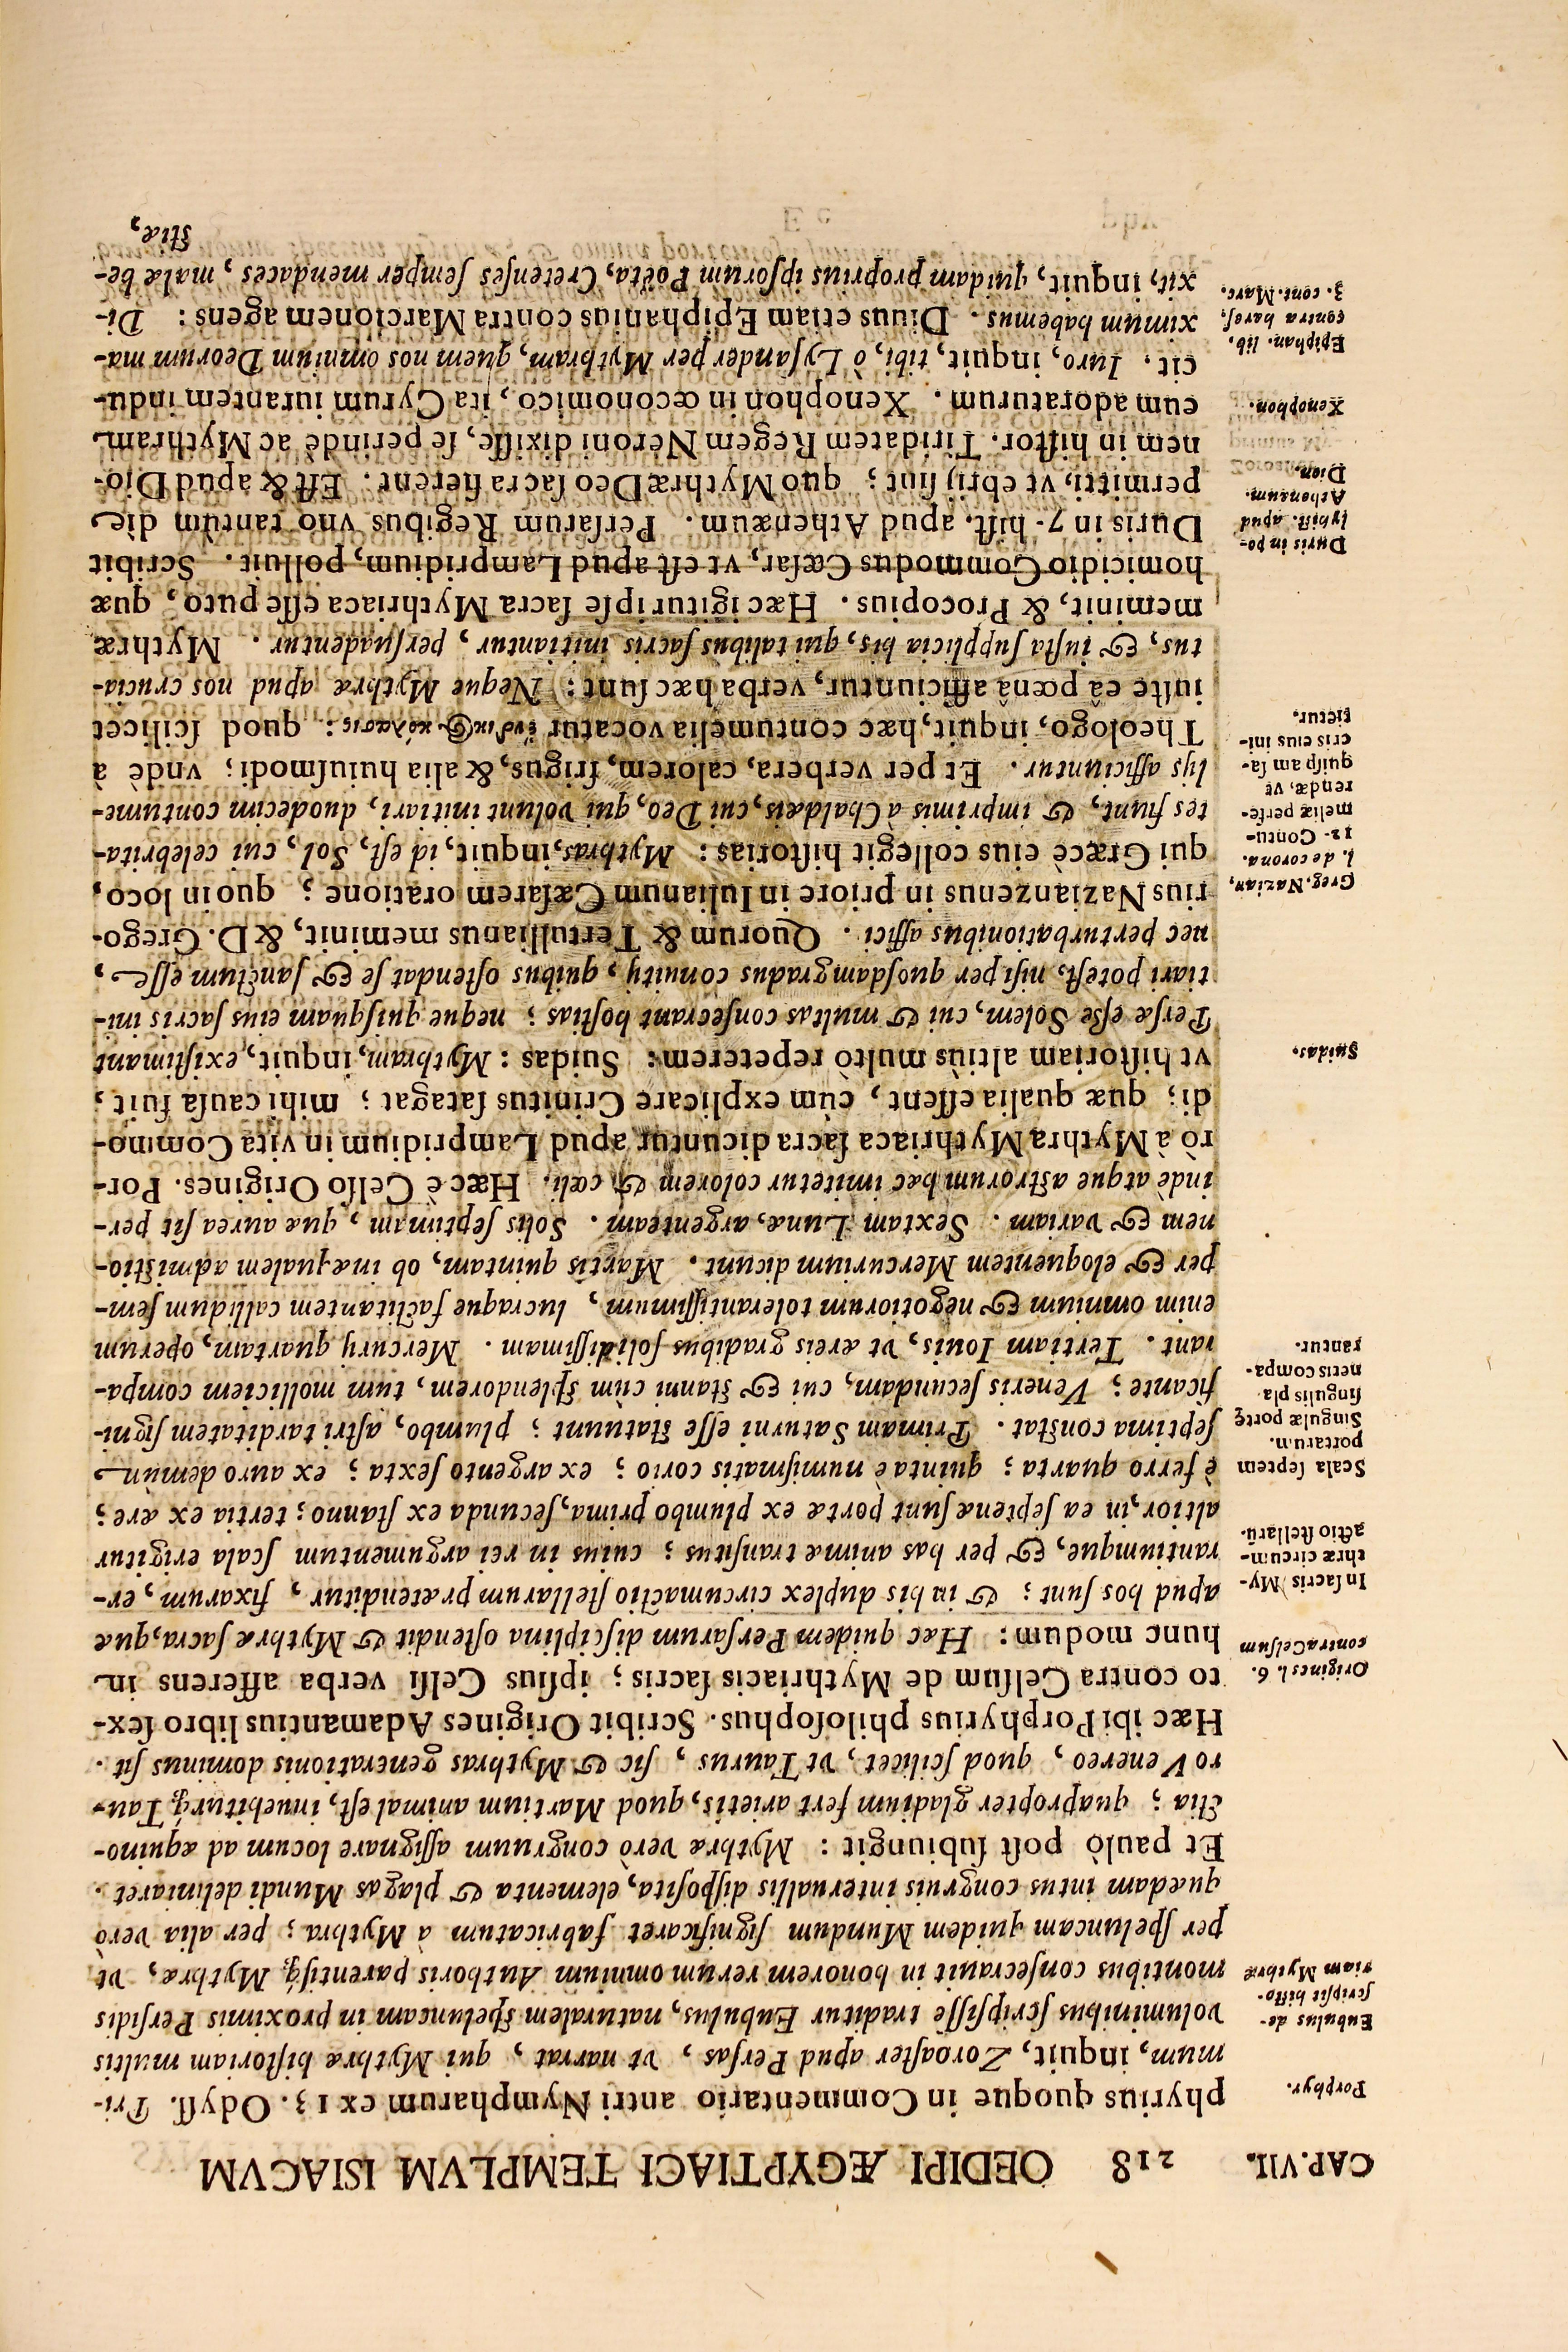 CAP. VII. 218 OEDIPI ÆGYPTIACI TEMPLVM ISIACVM
Porphyr.
phyrius quoque in Commentario antri Nympharum ex 13. Odyſſ. Pri-
mum, inquit, Zoroaſter apud Perſas, vt narrat, qui Mythræ hiſtoriam multis
Eubulus de-
ſcripſit hiſto-
riam Mythræ
voluminibus ſcripſiſſe traditur Eubulus, naturalem ſpeluncam in proximis Perſidis
montibus conſecrauit in honorem rerum omnium Authoris parentiſq́; Mythræ, vt
per ſpeluncam quidem Mundum ſignificaret fabricatum à Mythra; per alia verò
quædam intus congruis interuallis diſpoſita, elementa & plagas Mundi deliniaret.
Et paulò poſt ſubiungit: Mythræ verò congruum aſſignare locum ad æquino-
ctia; quapropter gladium fert arietis, quod Martium animal eſt, inuehiturq́; Tau-
ro Venereo, quod ſcilicet, vt Taurus, ſic & Mythras generationis dominus ſit.
Hæc ibi Porphyrius philoſophus. Scribit Origines Adamantius libro ſex-
Origines l. 6.
contra Celſum
to contra Celſum de Mythriacis ſacris; ipſius Celſi verba afferens in
hunc modum: Hæc quidem Perſarum diſciplina oſtendit & Mythræ ſacra, quæ
In ſacris My-
thræ circum-
actio ſtellarū.
apud hos ſunt; & in his duplex circumactio ſtellarum prætenditur, fixarum, er-
rantiumque, & per has animæ tranſitus; cuius in rei argumentum ſcala erigitur
altior, in ea ſeptenæ ſunt portæ ex plumbo prima, ſecunda ex ſtanno; tertia ex ære;
Scala ſeptem
portarum.
Singulæ portę
ſingulis pla
netis compa-
rantur.
è ferro quarta; quinta è numiſmatis corio; ex argento ſexta; ex auro demùm
ſeptima conſtat. Primam Saturni eſſe ſtatuunt; plumbo, aſtri tarditatem ſigni-
ficante; Veneris ſecundam, cui & ſtanni cùm ſplendorem, tum molliciem compa-
rant. Tertiam Iouis, vt æreis gradibus ſolidiſſimam. Mercurij quartam, operum
enim omnium & negotiorum tolerantiſſimum, lucraque factitantem callidum ſem-
per & eloquentem Mercurium dicunt. Martis quintam, ob inæqualem admiſtio-
nem & variam. Sextam Lunæ, argenteam. Solis ſeptimam, quæ aurea ſit per-
indè atque aſtrorum hæc imitetur colorem & cœli. Hæc è Celſo Origines. Por-
rò à Mythra Mythriaca ſacra dicuntur apud Lampridium in vita Commo-
di; quæ qualia eſſent, cùm explicare Crinitus ſatagat; mihi cauſa fuit,
Suidas.
vt hiſtoriam altiùs multò repeterem: Suidas: Mythram, inquit, exiſtimant
Perſæ eſſe Solem, cui & multas conſecrant hoſtias; neque quiſquam eius ſacris ini-
tiari poteſt, niſi per quoſdam gradus conuitij, quibus oſtendat ſe & ſanctum eſſe,
nec perturbationibus affici. Quorum & Tertullianus meminit, & D. Grego-
Greg. Nazian,
l. de corona.
12. Contu-
meliæ perfe-
rendæ, vt
quiſpam ſa-
cris eius ini-
tietur.
rius Nazianzenus in priore in Iulianum Cæſarem oratione; quo in loco,
qui Græcè eius collegit hiſtorias: Mythras, inquit, id eſt, Sol, cui celebrita-
tes fiunt, & imprimis à Chaldæis, cui Deo, qui volunt initiari, duodecim contume-
lijs afficiuntur. Et per verbera, calorem, frigus, & alia huiuſmodi; vndè à
Theologo, inquit, hæc contumelia vocatur ἔνδικος κόλασις: quod ſcilicet
iuſtè eâ pœnâ afficiuntur, verba hæc ſunt: Neque Mythræ apud nos crucia-
tus, & iuſta ſupplicia his, qui talibus ſacris initiantur, perſuadentur. Mythræ
meminit, & Procopius. Hæc igitur ipſe ſacra Mythriaca eſſe puto, quæ
homicidio Commodus Cæſar, vt eſt apud Lampridium, polluit. Scribit
Duris in po-
lyhiſt. apud
Athenæum.
Dion.
Duris in 7. hiſt. apud Athenæum. Perſarum Regibus vno tantùm die
permitti, vt ebrij ſint; quo Mythræ Deo ſacra fierent. Eſt & apud Dio-
nem in hiſtor. Tiridatem Regem Neroni dixiſſe, ſe perindè ac Mythram
Xenophon.
eum adoraturum. Xenophon in œconomico, ita Cyrum iurantem indu-
cit. Iuro, inquit, tibi, ò Lyſander per Mythram, quem nos omnium Deorum ma-
Epiphan. lib.
contra hæreſ.
3. cont. Marc.
ximum habemus. Diuus etiam Epiphanius contra Marcionem agens: Di-
xit, inquit, quidam proprius ipſorum Poëta, Cretenſes ſemper mendaces, malæ be-
ſtiæ,